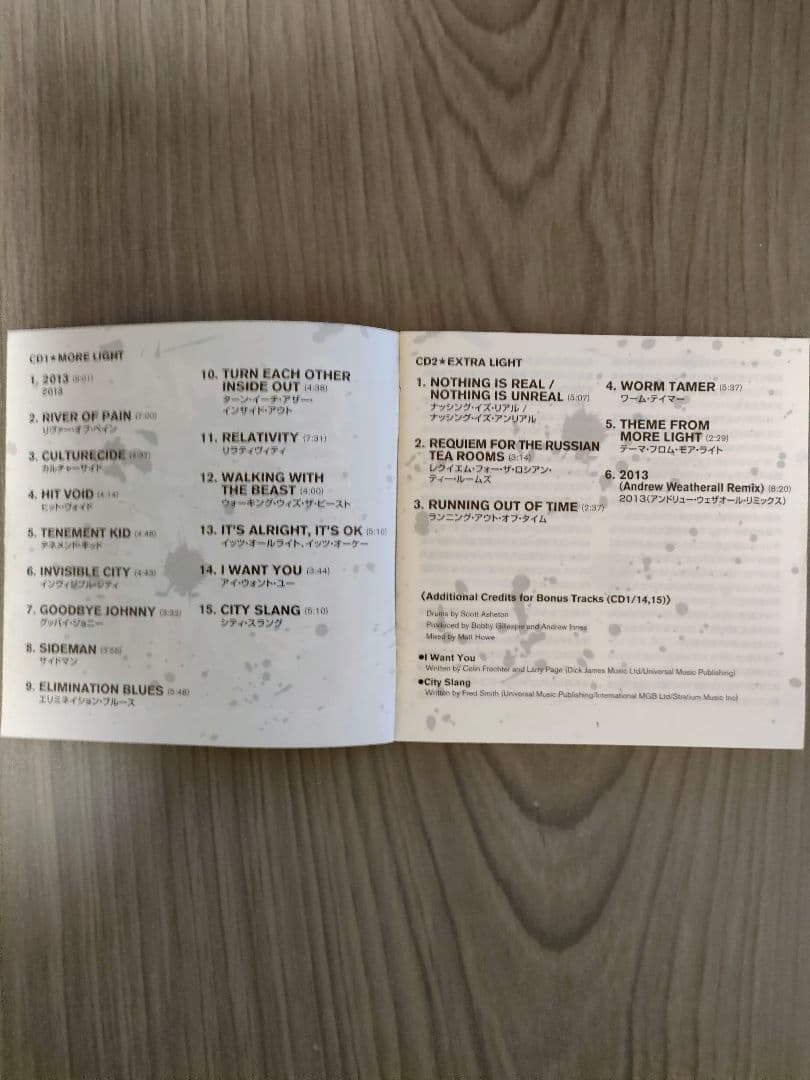 CD1★MORE LIGHT
1. 2013 (9:01)
2013
2. RIVER OF PAIN (7:00)
リヴァー・オブ・ペイン
3. CULTURECIDE
カルチャーサイド
4. HIT VOID (4:14)
ヒット・ヴォイド
5. TENEMENT KID (4:48)
テネメント・キッド
6. INVISIBLE CITY (4:43)
インヴィジブル・シティ
7. GOODBYE JOHNNY (3:33)
グッバイ・ジョニー
8. SIDEMAN
サイドマン
9. ELIMINATION BLUES (5:48)
エリミネイション・ブルース
10. TURN EACH OTHER
INSIDE OUT (4:38)
ターン・イーチ・アザー・
インサイド・アウト
11. RELATIVITY (7:31)
リラティヴィティ
12. WALKING WITH
THE BEAST (4:00)
ウォーキング・ウィズ・ザ・ビースト
13. IT'S ALRIGHT, IT'S OK (5:10)
イッツ・オールライト、イッツ・オーケー
14. I WANT YOU (3:44)
アイ・ウォント・ユー
15. CITY SLANG (5:10)
シティ・スラング
CD2★EXTRA LIGHT
1. NOTHING IS REAL /
NOTHING IS UNREAL (5:07)
ナッシング・イズ・リアル /
ナッシング・イズ・アンリアル
2. REQUIEM FOR THE RUSSIAN
TEA ROOMS (3:14)
レクイエム・フォー・ザ・ロシアン・
ティー・ルームズ
3. RUNNING OUT OF TIME (2:37)
ランニング・アウト・オブ・タイム
4. WORM TAMER (5:37)
ワーム・テイマー
5. THEME FROM
MORE LIGHT (2:29)
テーマ・フロム・モア・ライト
6. 2013
(Andrew Weatherall Remix) (8:20)
2013(アンドリュー・ウェザオール・リミックス)
〈Additional Credits for Bonus Tracks (CD1/14,15)〉
Drums by Scott Asheton
Produced by Bobby Gillespie and Andrew Innes
Mixed by Matt Howe
●I Want You
Written by Colin Frechter and Larry Page (Dick James Music Ltd/Universal Music Publishing)
●City Slang
Written by Fred Smith (Universal Music Publishing/International MGB Ltd/Stratium Music Inc)